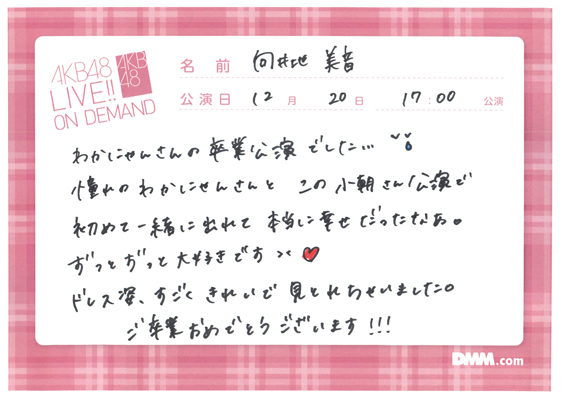 AKB48
LIVE!!
ON DEMAND
AKB
48
名前 向井地 美音
公演日 12月 20日 17:00 公演
わかにゃんさんの卒業公演でした…
憧れのわかにゃんさんと この小朝さん公演で
初めて一緒に出れて 本当に幸せだったなぁ。
ずっとずっと大好きです
ドレス姿、すごくきれいで見とれちゃいました。
ご卒業おめでとうございます!!!
DMM.com